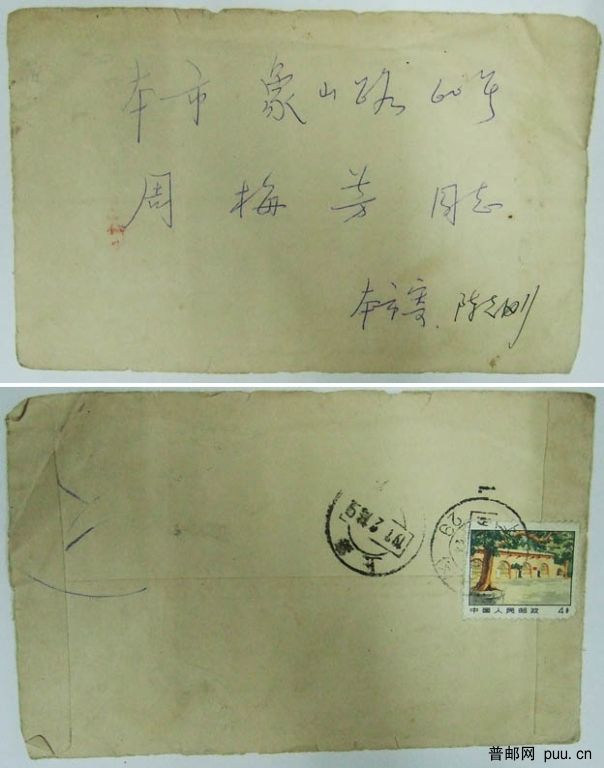 本市 象山路 60号
周 梅 芳 同志
本市寄 陈志刚
上海
29
中国人民邮政 4分
普邮网 puu.cn